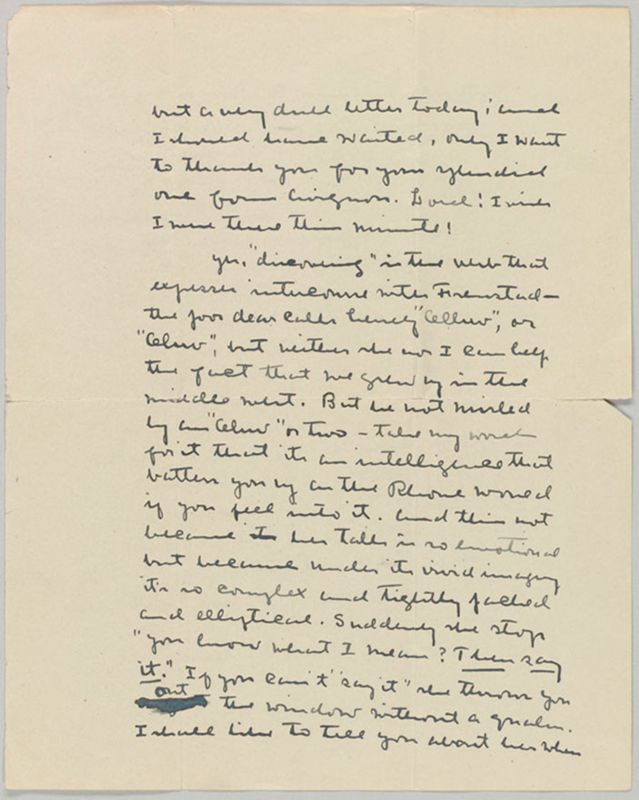 but a very dull letter today; and
I should have waited, only I want
to thank you for your splendid
one from Avignon. Lord! I wish
I were there this minute!
Yes, "discovering" is the verb that
expresses intercourse with Fremstad—
the poor dear calls herself
but neither she nor I can help
the fact that we grew up in the
middle west. But be not misled
by an or two — take my word
for it that it's an intelligence that
batters you up as the Rhone would
if you fell into it. And this not
because her talk is so emotional
but because under its vivid imagery
it's so complex and tightly packed
and elliptical. Suddenly she stops
"you know what I mean? Then say
it." If you can't "say it" she throws you
out the window without a qualm.
I should like to tell you about her when